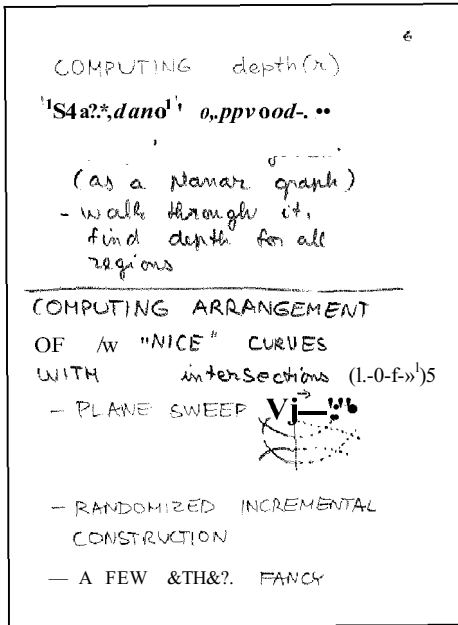 6
COMPUTING depth(r)
'1S4 a?.*,dano1'' o,.ppvood-. ••
(as a planar graph)
- walk through it,
find depth for all
regions
COMPUTING ARRANGEMENT
OF /w "NICE" CURVES
WITH intersections (l.-0-f-»¹)5
- PLANE SWEEP Vj—
- RANDOMIZED INCREMENTAL
CONSTRUCTION
— A FEW &TH&?. FANCY